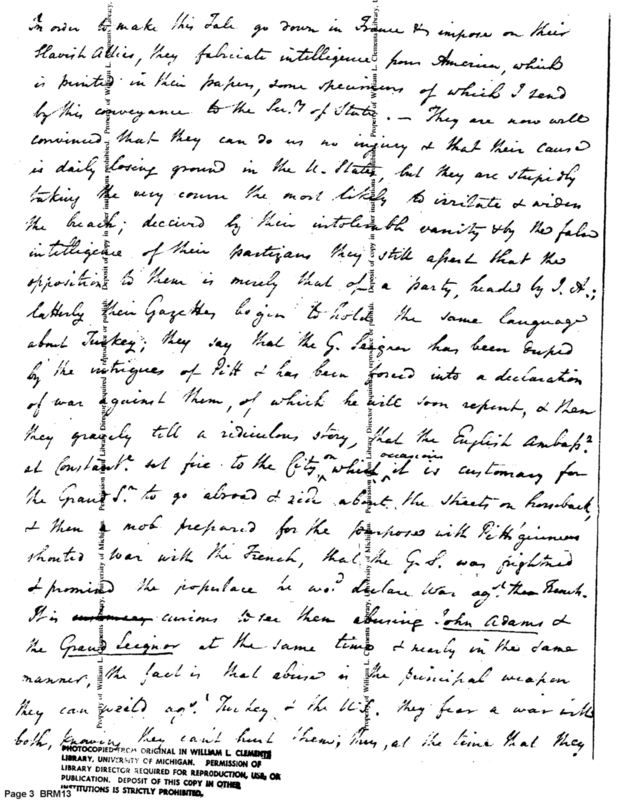 In order to make this Tale go down in France & impose on their
Slavish Allies, they fabricate intelligence from America, which
is printed in their papers, some specimens of which I send
by this conveyance to the Secy. of State. — They are now well
convinced that they can do us no injury & that their cause
is daily losing ground in the U. States, but they are stupidly
taking the very course the most likely to irritate & widen
the breach; deceived by their intolerable vanity & by the false
intelligence of their partizans they still assert that the
opposition to them is merely that of a party, headed by J. A.;
latterly their Gazettes begin to hold the same language
about Turkey; they say that the G. Seignor has been duped
by the intrigues of Pitt & has been forced into a declaration
of war against them, of which he will soon repent, & then
they gravely tell a ridiculous story, that the English Ambassr.
at Constante. set fire to the City, on which occasion it is customary for
the Grand Sr. to go abroad & ride about the streets on horseback,
& then a mob prepared for the purposes with Pitt's guineas
shouted War with the French, that the G. S. was frightned
& promised the populace he wod. declare War agt. the French.
It is curious to see them abusing John Adams &
the Grand Seignor at the same time & nearly in the same
manner, the fact is that abuse is the principal weapon
they can wield agt. Turkey & the U.S. they fear a war with
both, knowing they can't hurt them; thus, at the time that they
Property of William L. Clements Library, University of Michigan. Permission of Library Director required to reproduce or publish. Deposit of copy in other institutions prohibited.
Property of William L. Clements Library, University of Michigan. Permission of Library Director required to reproduce or publish. Deposit of copy in other institutions prohibited.
PHOTOCOPIED FROM ORIGINAL IN WILLIAM L. CLEMENTS
LIBRARY, UNIVERSITY OF MICHIGAN. PERMISSION OF
LIBRARY DIRECTOR REQUIRED FOR REPRODUCTION, USE, OR
PUBLICATION. DEPOSIT OF THIS COPY IN OTHER
INSTITUTIONS IS STRICTLY PROHIBITED.
Page 3 BRM13